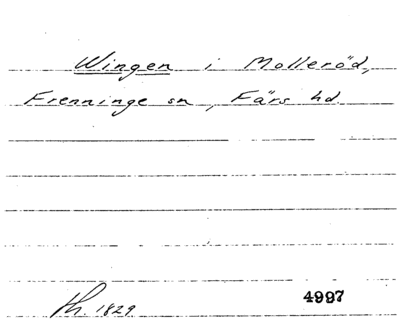 Wingen i Molleröd,
Frenninge sn, Färs hd.
fh. 1829
4997